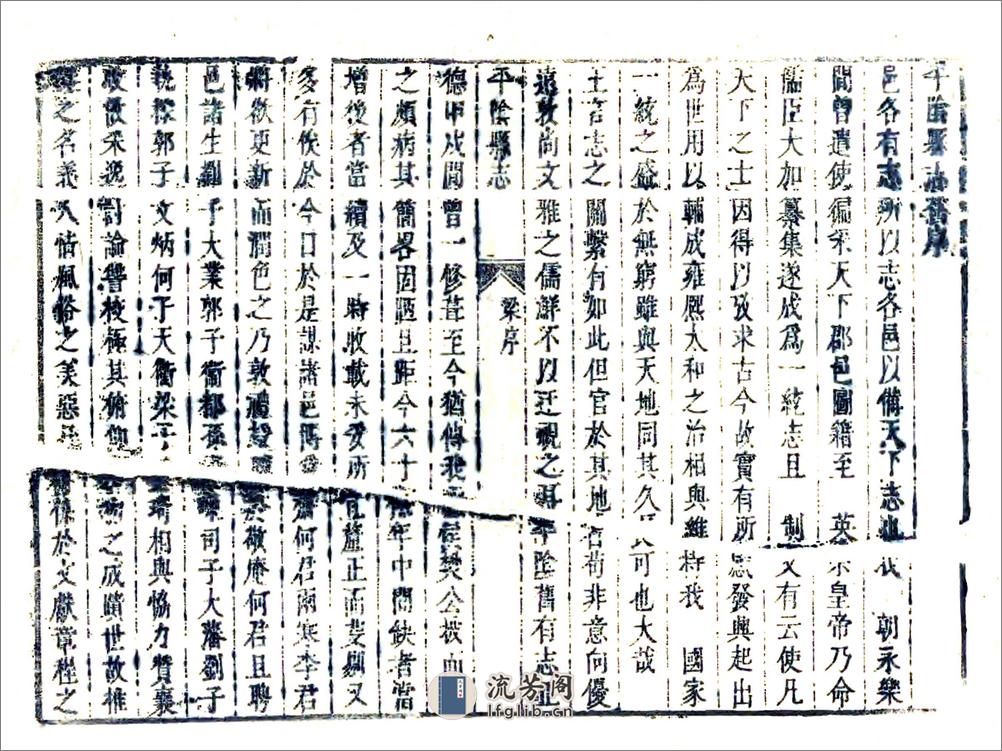 平陰縣志舊序
邑各有志所以志各邑以備天下志也我 朝永樂
間曾遣使徧采天下郡邑圖籍至 英宗皇帝乃命
儒臣大加纂集遂成為一統志且 制文有云使凡
天下之士因得以攷求古今故實有所感發興起出
為世用以輔成雍熙太和之治相與維持我 國家
一統之盛於無窮雖與天地同其久 可也大哉
王言志之關繫有如此但官於其地者苟非意向優
遠敦尚文雅之儒鮮不以迂視之耳平陰舊有志正
平陰縣志 梁序
德甲戌間曾一修葺至今猶傳我 侯樊公披而
之頗病其簡畧固陋且距今六十 年中間缺者當
增後者當續及一時收載未爰所 宜釐正而芟剷又
多有俟於今日於是謀諸邑博 何君南寒李君
將欲更新而潤色之乃敦禮 敬庵何君且聘
邑諸生劉子大業郭子衛都孫 司子大藩劉子
執 郭子文炳何子天衢梁子 琦相與恊力贊襄
收散采逸討論讐校極其俯仰 之成蹟世故稚
之名義人情風俗之美惡 係於文獻章程之
流芳阁
lfglib.cn